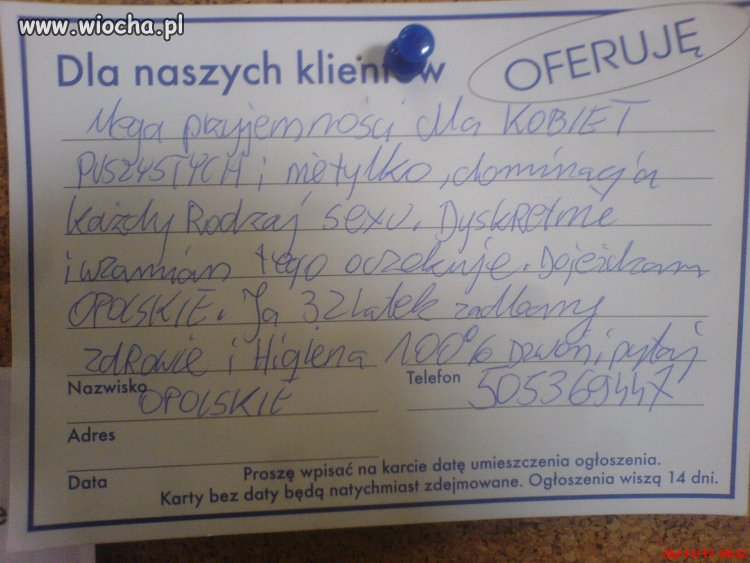 www.wiocha.pl
Dla naszych klientów
OFERUJĘ
Mega przyjemności dla KOBIET
PUSZYSTYCH i nietylko, dominacja
Każdy Rodzaj sexu. Dyskretnie
i wzamian tego oczekuję. Dojeżdzam
OPOLSKIE. Ja 32 latek zadbany
zdrowie i Higiena 100% Dzwoń i pytaj
Nazwisko OPOLSKIE
Telefon 505369447
Adres
Data
Proszę wpisać na karcie datę umieszczenia ogłoszenia.
Karty bez daty będą natychmiast zdejmowane. Ogłoszenia wiszą 14 dni.